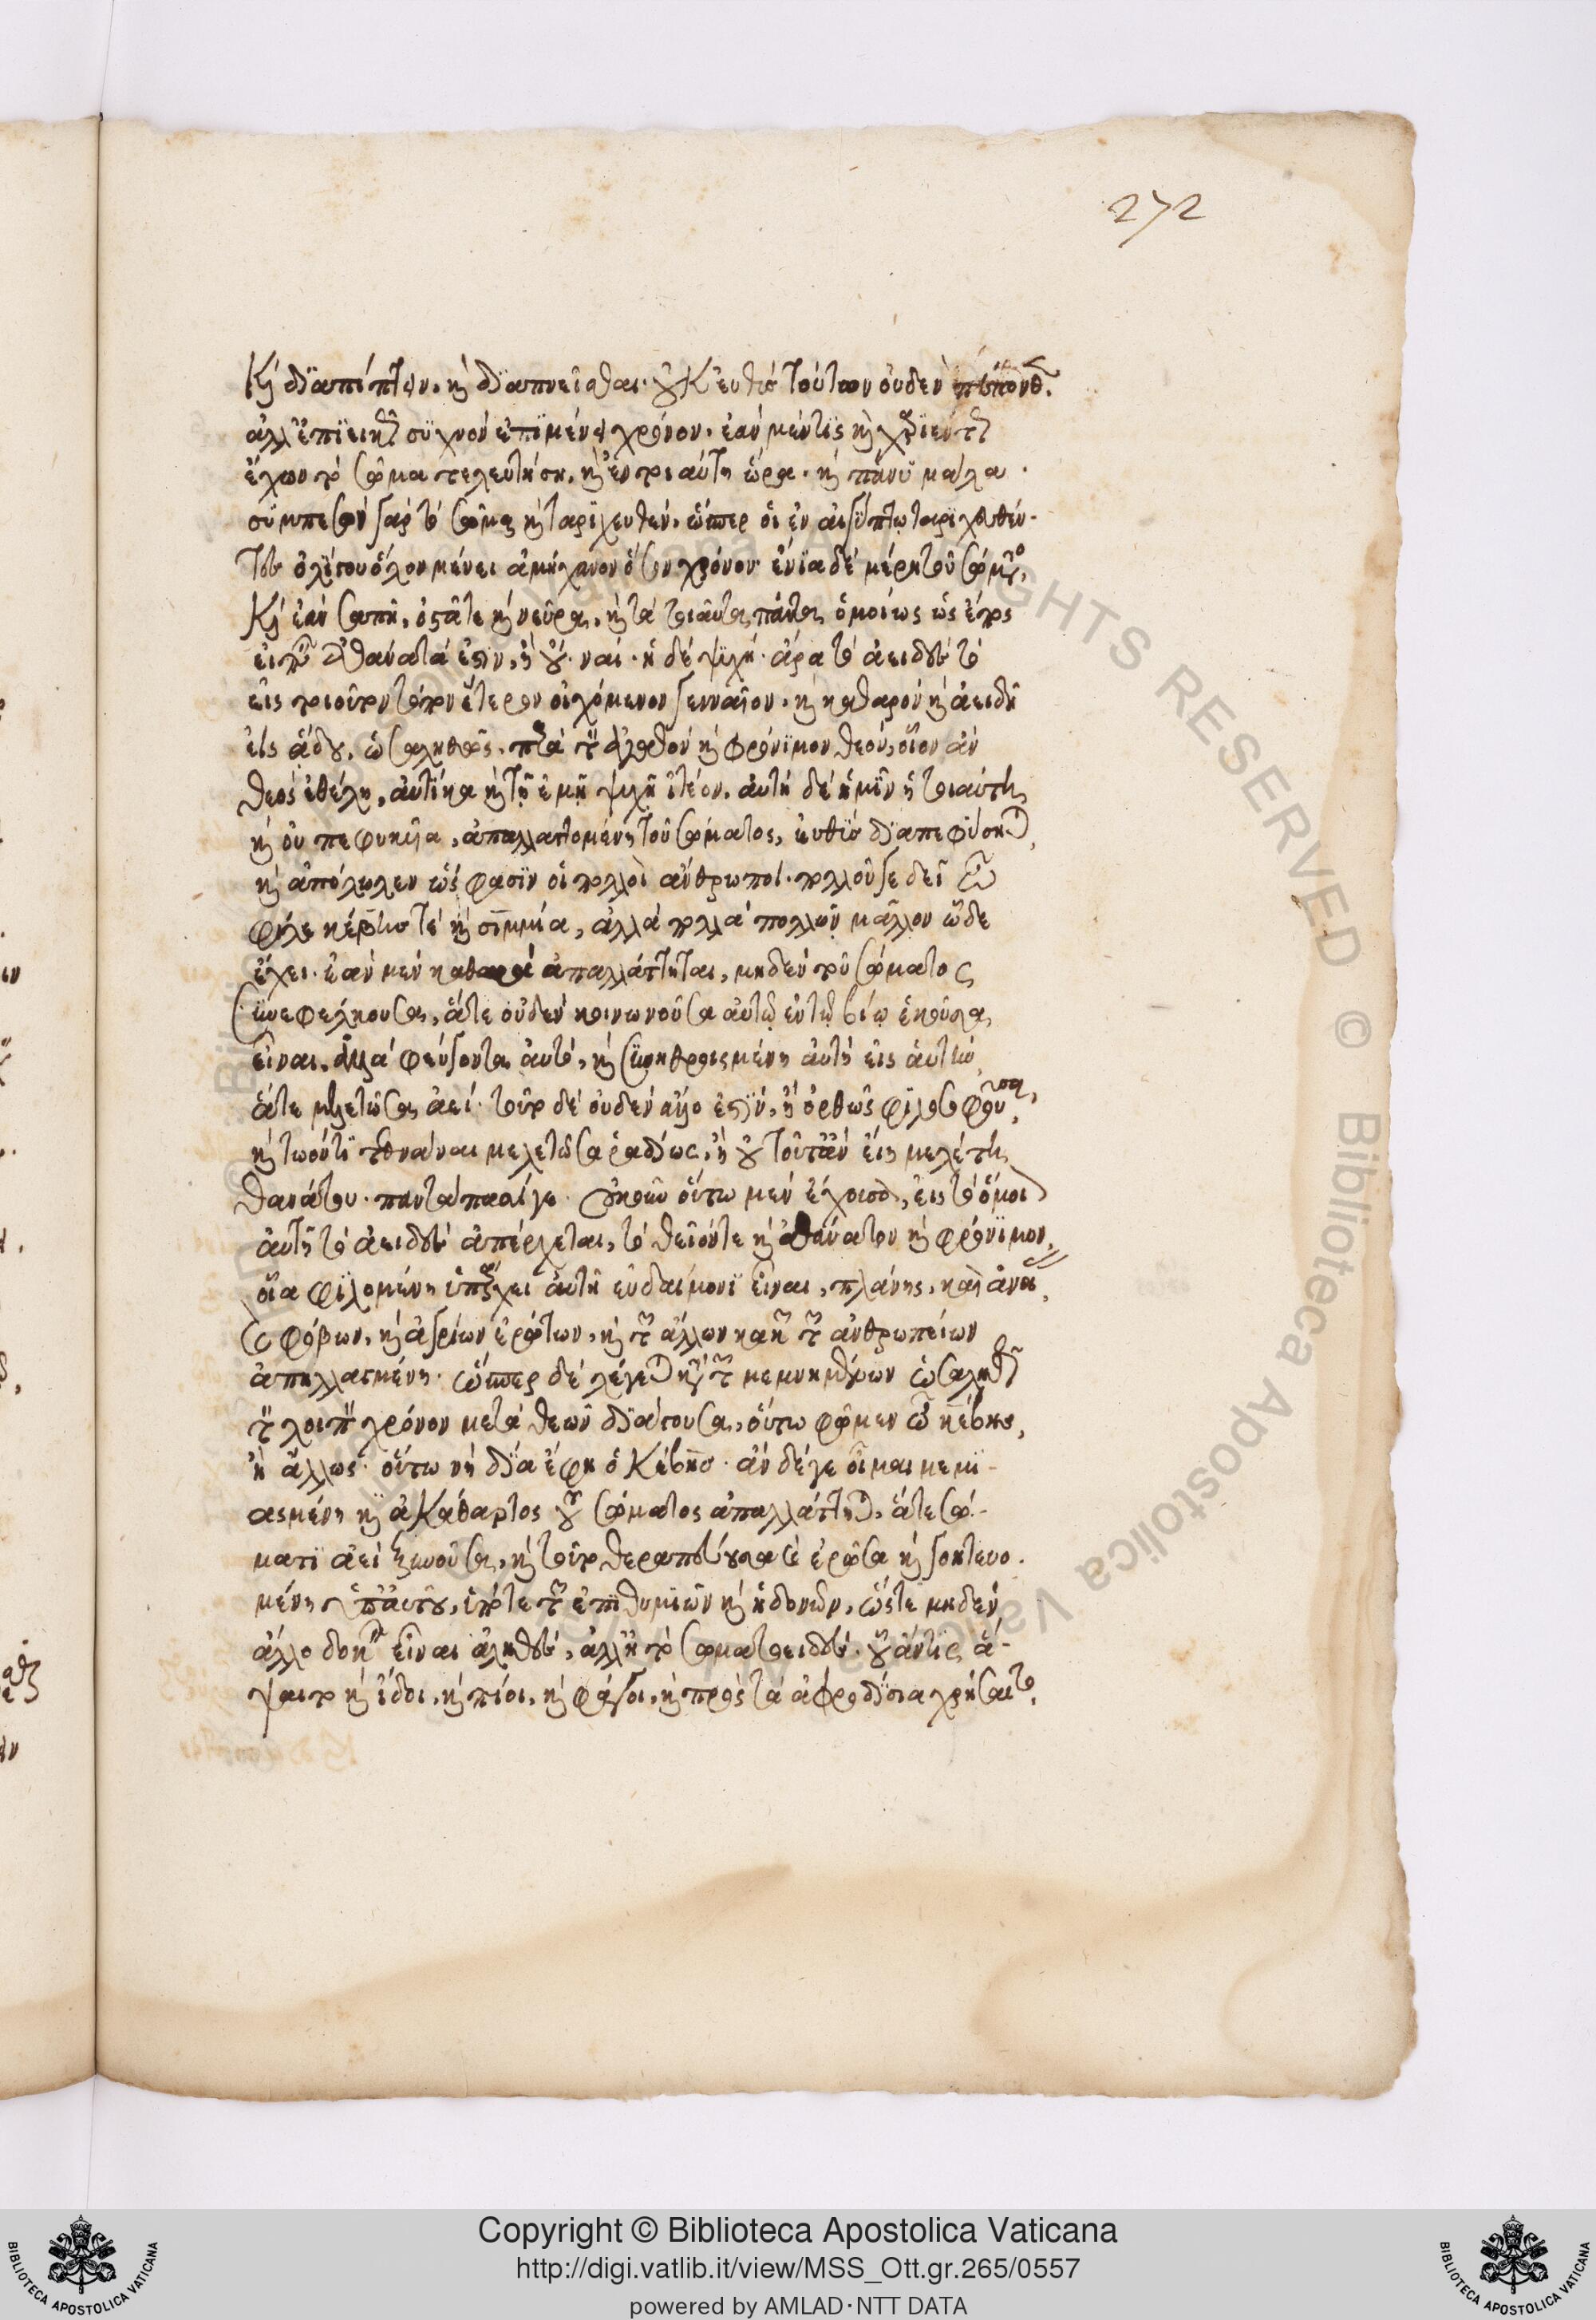 272
καὶ διαπίπτειν, καὶ διαπνεῖσθαι· οὐκ εὐθὺς τούτων οὐδὲν πέπονθεν,
ἀλλ' ἐπιεικῶς συχνὸν ἐπιμένει χρόνον. ἐὰν μέν τις καὶ χαριέντως
ἔχων τὸ σῶμα τελευτήσῃ, καὶ ἐν τοιαύτῃ ὥρᾳ, καὶ πάνυ μάλα.
συμπεσὸν γὰρ τὸ σῶμα καὶ ταριχευθὲν, ὥσπερ οἱ ἐν αἰγύπτῳ ταριχευθέν-
τες ὀλίγου ὅλον μένει ἀμήχανον ὅσον χρόνον· ἔνια δὲ μέρη τοῦ σώματος,
καὶ ἐὰν σαπῇ, ὀστᾶ τε καὶ νεῦρα, καὶ τὰ τοιαῦτα πάντα ὁμοίως ὡς ἔπος
εἰπεῖν ἀθάνατά ἐστιν, ἢ οὔ· ναί· ἡ δὲ ψυχὴ ἄρα τὸ ἀειδὲς τὸ
εἰς τοιοῦτον τόπον ἕτερον οἰχόμενον γενναῖον, καὶ καθαρὸν καὶ ἀειδῆ
εἰς ᾅδου, ὡς ἀληθῶς, παρὰ τὸν ἀγαθὸν καὶ φρόνιμον θεόν, οἷον ἂν
θεὸς ἐθέλῃ, αὐτίκα καὶ τῇ ἐμῇ ψυχῇ ἰτέον, αὐτὴ δὲ ἡμῖν ἡ τοιαύτη
καὶ οὐ πεφυκυῖα, ἀπαλλαττομένη τοῦ σώματος, εὐθὺς διαπεφύσηται,
καὶ ἀπόλωλεν ὥς φασιν οἱ πολλοὶ ἄνθρωποι· πολλοῦ γε δεῖ ὦ
φίλε κέβης τε καὶ σιμμία, ἀλλὰ πολλὰ πολλῶν μᾶλλον ὧδε
ἔχει· ἐὰν μὲν καθαρὰ ἀπαλλάττηται, μηδὲν τοῦ σώματος
συνεφέλκουσα, ἅτε οὐδὲν κοινωνοῦσα αὐτῷ ἐν τῷ βίῳ ἑκοῦσα
εἶναι, ἀλλὰ φεύγουσα αὐτό, καὶ συνηθροισμένη αὐτὴ εἰς ἑαυτὴν,
ἅτε μελετῶσα ἀεί· τοῦτο δὲ οὐδὲν ἄλλο ἐστὶν, ἢ ὀρθῶς φιλοσοφοῦσα,
καὶ τῷ ὄντι τεθνάναι μελετῶσα ῥᾳδίως, ἢ οὐ τοῦτ' ἂν εἴη μελέτη
θανάτου· παντάπασί γε· οὐκοῦν οὕτω μὲν ἔχουσα, εἰς τὸ ὅμοιον
αὐτῇ τὸ ἀειδὲς ἀπέρχεται, τὸ θεῖόν τε καὶ ἀθάνατον καὶ φρόνιμον,
οἷ ἀφικομένῃ ὑπάρχει αὐτῇ εὐδαίμονι εἶναι, πλάνης, καὶ ἀνοίας,
καὶ φόβων, καὶ ἀγρίων ἐρώτων, καὶ τῶν ἄλλων κακῶν τῶν ἀνθρωπείων
ἀπηλλαγμένη· ὥσπερ δὲ λέγεται κατὰ τῶν μεμυημένων ὡς ἀληθῶς
τὸν λοιπὸν χρόνον μετὰ θεῶν διάγουσα, οὕτω φῶμεν ὦ κέβης,
ἢ ἄλλως· οὕτω νὴ δία ἔφη ὁ Κέβης· ἂν δέ γε οἶμαι μεμι-
ασμένη καὶ ἀκάθαρτος τοῦ σώματος ἀπαλλάττηται, ἅτε σώ-
ματι ἀεὶ ξυνοῦσα, καὶ τοῦτο θεραπεύουσα καὶ ἐρῶσα καὶ γοητευο-
μένη ὑπ' αὐτοῦ, ὑπό τε τῶν ἐπιθυμιῶν καὶ ἡδονῶν, ὥστε μηδὲν
ἄλλο δοκεῖν εἶναι ἀληθὲς, ἀλλ' ἢ τὸ σωματοειδὲς· οὗ ἄν τις ἅ-
ψαιτο καὶ ἴδοι, καὶ πίοι, καὶ φάγοι, καὶ πρὸς τὰ ἀφροδίσια χρήσαιτο,
Copyright © Biblioteca Apostolica Vaticana
http://digi.vatlib.it/view/MSS_Ott.gr.265/0557
powered by AMLAD·NTT DATA